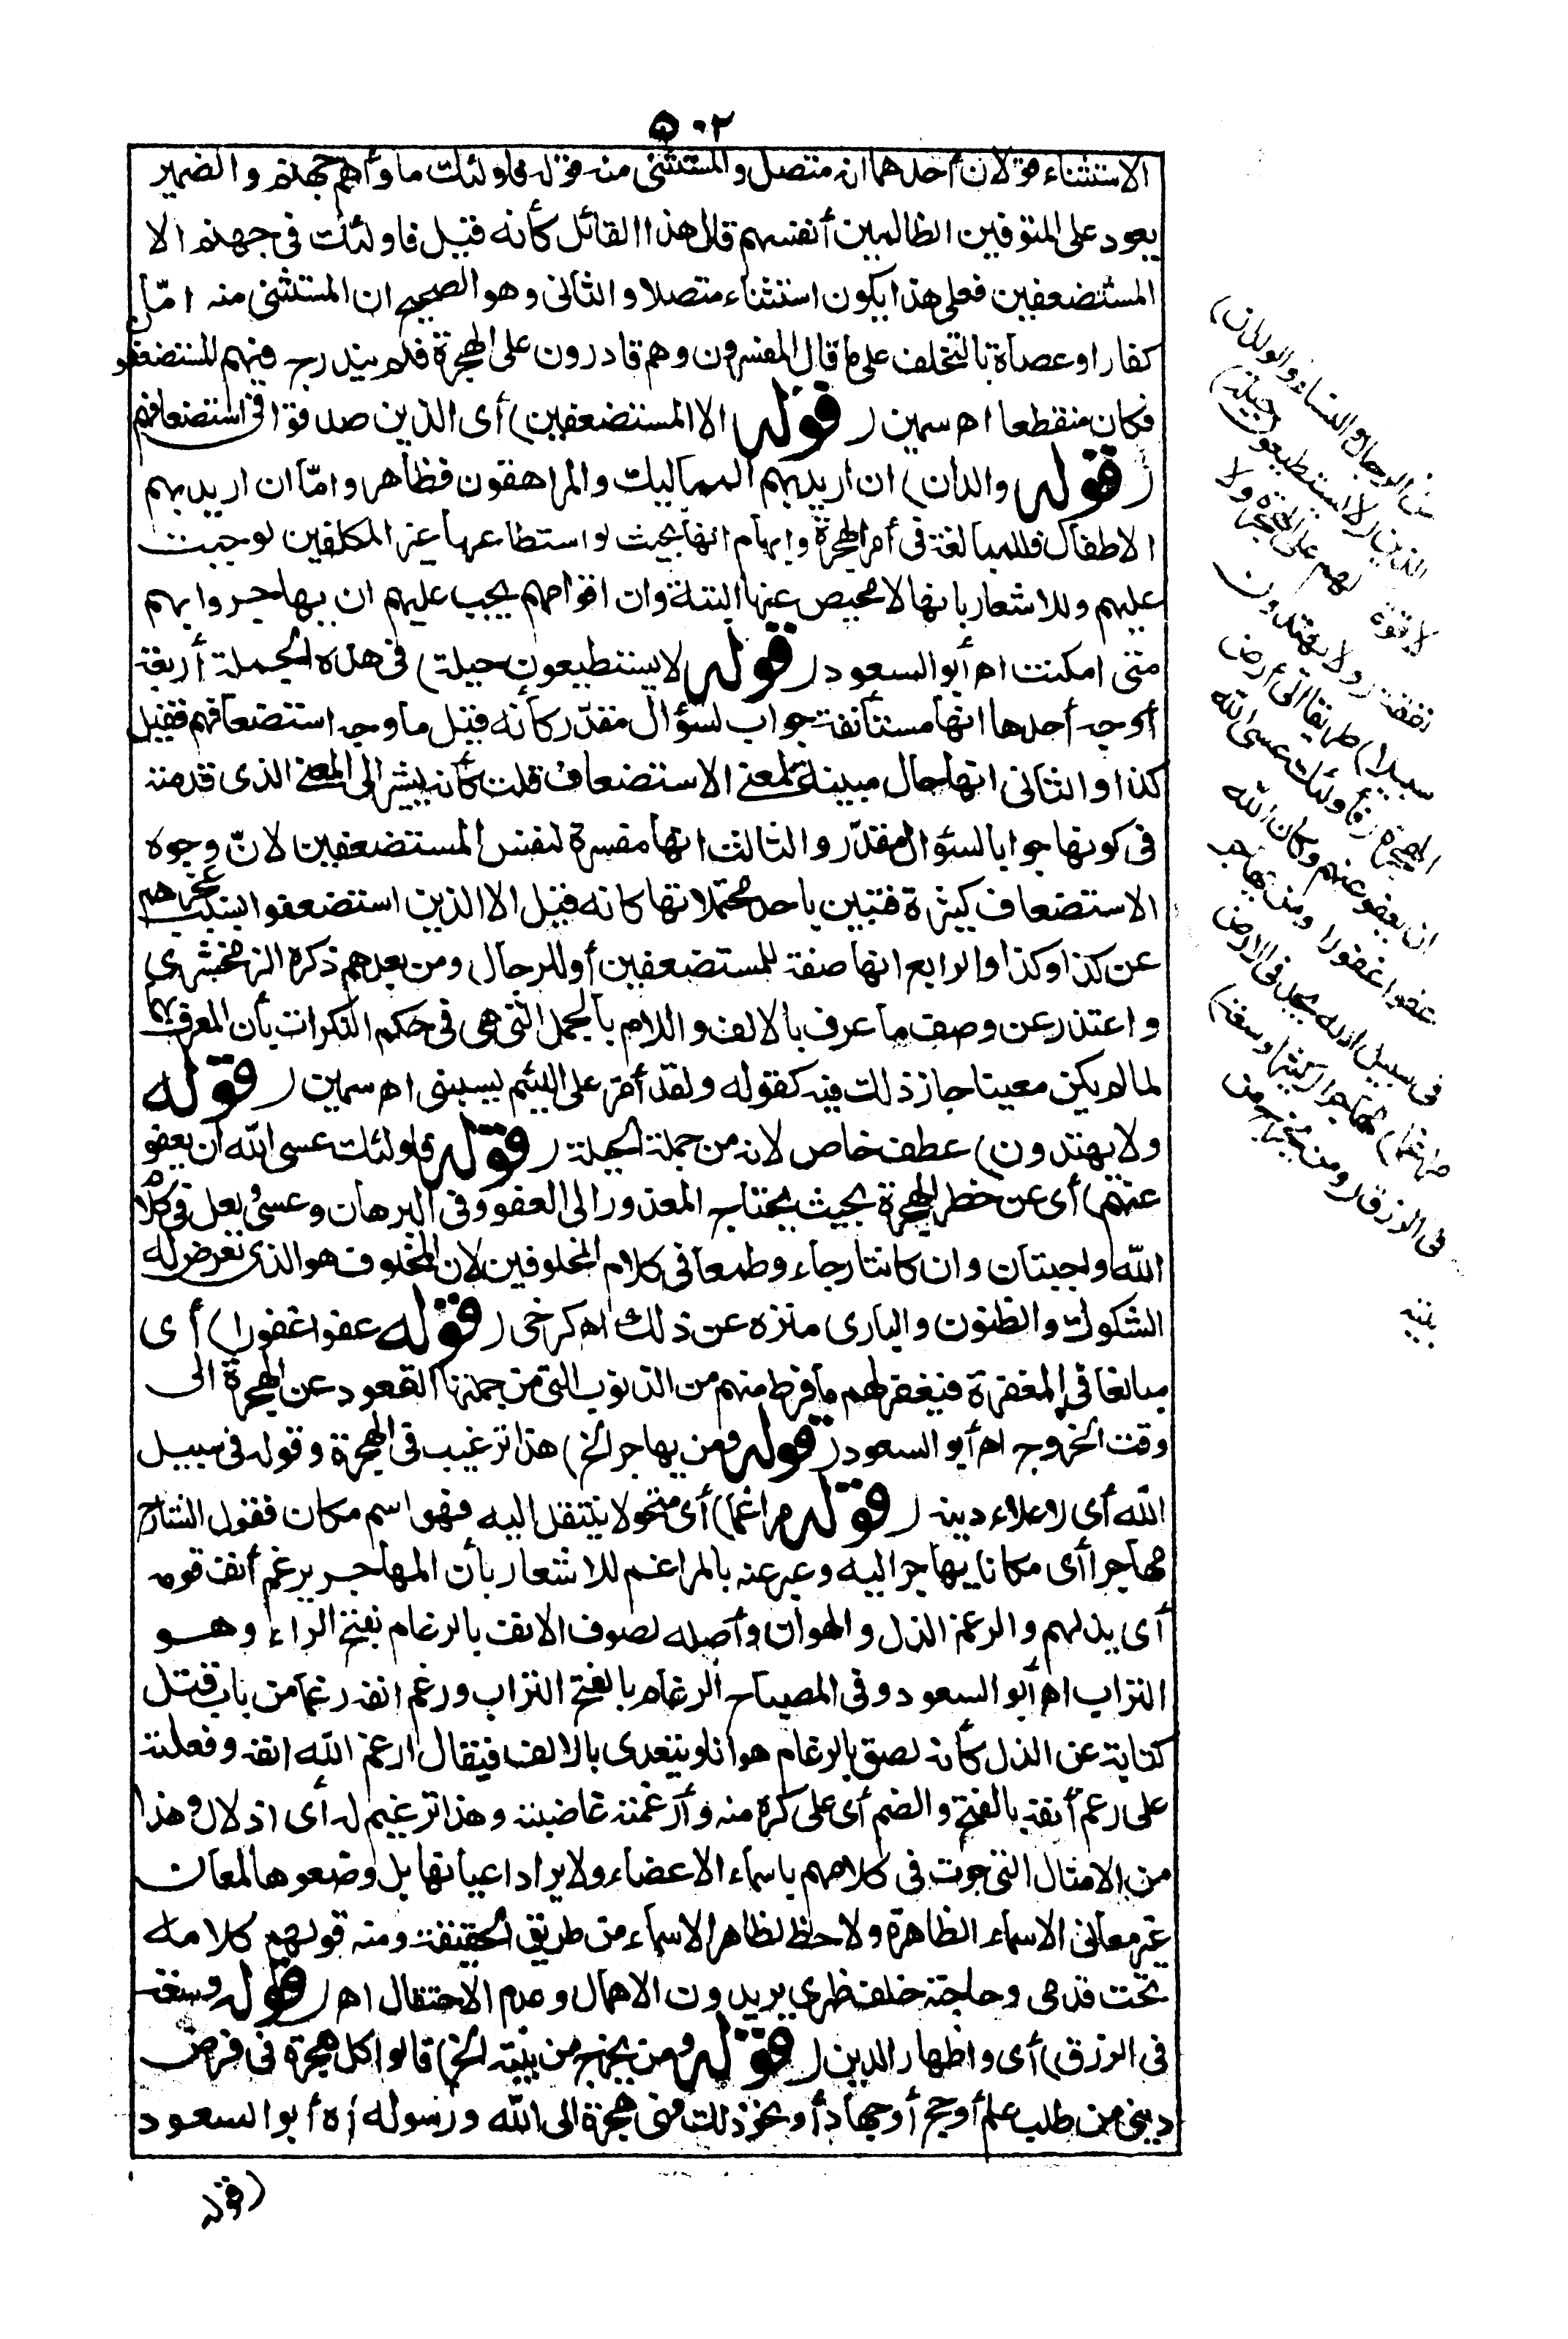 ٥٠٢
الاستثناء قولان أحدهما انه متصل والمستثنى منه قوله فاولئك مأواهم جهنم والضمير
يعود على المتوفين الظالمين أنفسهم قال هذا القائل كأنه قيل فاولئك فى جهنم الا
المستضعفين فعلى هذا يكون استثناء متصلا والثانى وهو الصحيح ان المستثنى منه امّا
كفارا وعصاة بالتخلف على ما قال المفسرون وهم قادرون على الهجرة فلم يندرج فيهم المستضعفون
فكان منقطعا اه سمين (قوله الا المستضعفين) أى الذين صدقوا فى استضعافهم
(قوله والدان) ان اريد بهم المماليك والمراهقون فظاهر وامّا ان اريد بهم
الاطفال فللمبالغة فى أمر الهجرة وإيهام انها بحيث لو استطاعها غير المكلفين لوجبت
عليهم وللاشعار بانها لا محيص عنها البتة وان اقوامهم يجب عليهم ان يهاجروا بهم
متى امكنت اه أبو السعود (قوله لا يستطيعون حيلة) فى هذه الجملة أربعة
أوجه أحدها انها مستأنفة جواب لسؤال مقدّر كأنه قيل ما وجه استضعافهم فقيل
كذا والثانى انها حال مبينة لمعنى الاستضعاف قلت كأنه يشير الى المعنى الذى قدمته
فى كونها جوابا لسؤال مقدّر والثالث انها مفسرة لنفس المستضعفين لانّ وجوه
الاستضعاف كثيرة فتبين باحد محتملاتها كانه قيل الا الذين استضعفوا بسبب عجزهم
عن كذا وكذا والرابع انها صفة للمستضعفين أو للرجال ومن بعدهم ذكره الزمخشرى
واعتذر عن وصف ما عرف بالالف واللام بالجمل التى هى فى حكم النكرات بأن المعرف بها
لما لم يكن معينا جاز ذلك فيه كقوله ولقد أمرّ على اللئيم يسبنى اه سمين (قوله
ولا يهتدون) عطف خاص لانه من جملة الحيلة (قوله فاولئك عسى الله أن يعفو
عنهم) أى عن خطر الهجرة بحيث يحتاج المعذور الى العفو وفى البرهان وعسى ولعل فى كلام
الله واجبتان وان كانتا رجاء وطمعا فى كلام المخلوقين لان المخلوق هو الذى تعرض له
الشكوك والظنون والبارى منزه عن ذلك اه كرخى (قوله عفوا غفورا) أى
مبالغا فى المغفرة فيغفر لهم ما فرط منهم من الذنوب التى من جملتها القعود عن الهجرة الى
وقت الخروج اه أبو السعود (قوله ومن يهاجر الخ) هذا ترغيب فى الهجرة وقوله فى سبيل
الله أى لاعلاء دينه (قوله مراغما) أى متحولا ينتقل اليه فهو اسم مكان فقول الشارح
مهاجرا أى مكانا يهاجر اليه وعبر عنه بالمراغم للاشعار بأن المهاجر يرغم أنف قومه
أى يذلهم والرغم الذل والهوان وأصله لصوق الانف بالرغام بفتح الراء وهو
التراب اه أبو السعود وفى المصباح الرغام بالفتح التراب ورغم انفه رغما من باب قتل
كناية عن الذل كأنه لصق بالرغام هوانا ويتعدى بالالف فيقال ارغم الله انفه وفعلته
على رغم أنفه بالفتح والضم أى على كره منه وأرغمته غاضبته وهذا ترغيم له أى اذلال وهذا
من الامثال التى جرت فى كلامهم باسماء الاعضاء ولا يراد اعيانها بل وضعوها لمعان
غير معانى الاسماء الظاهرة ولا حظ لظاهر الاسماء من طريق الحقيقة ومنه قولهم كلامه
تحت قدمى وحاجته خلف ظهرى يريدون الاهمال وعدم الاحتفال اه (قوله وسعة
فى الرزق) أى واظهار الدين (قوله ومن يخرج من بيته الخ) قالوا كل هجرة فى غرض
دينى من طلب علم أو حج أو جهاد أو نحو ذلك فهى هجرة الى الله ورسوله اه أبو السعود
(قوله
من الرجال والنساء والولدان)
الذين (لا يستطيعون حيلة)
لا قوة لهم على الهجرة ولا
نفقة (ولا يهتدون
سبيلا) طريقا الى أرض
الهجرة (فأولئك عسى الله
ان يعفو عنهم وكان الله
عفوا غفورا ومن يهاجر
فى سبيل الله يجد فى الارض
مراغما) مهاجرا (كثيرا وسعة)
فى الرزق (ومن يخرج من
بيته